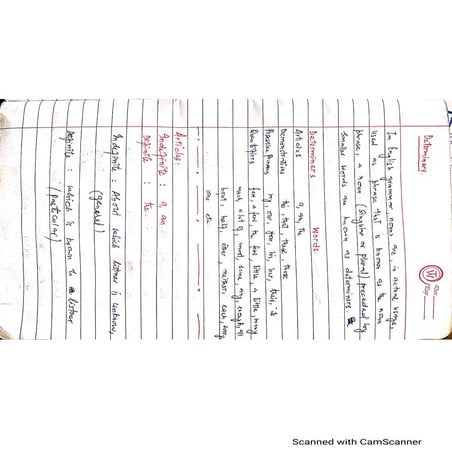 Determiners
In English grammar, nouns are in actual usage,
used as phrase that is known as the noun
phrase, a noun (singular or plural) preceded by
smaller words are known as determiners.
Determiners Words
Articles a, an, the
Demonstratives this, that, these, those
Possessive my, our, your, his, her, their, its
Quantifiers few, a few, the few, little, a little, many
much, a lot of, most, some, any, enough, all
both, half, either, neither, each, every
one etc
Articles:
Indefinite : a, an.
Definite : the
Indefinite : About which listener is unknown,
(general)
Definite : which is known to listener
(particular)
Scanned with CamScanner